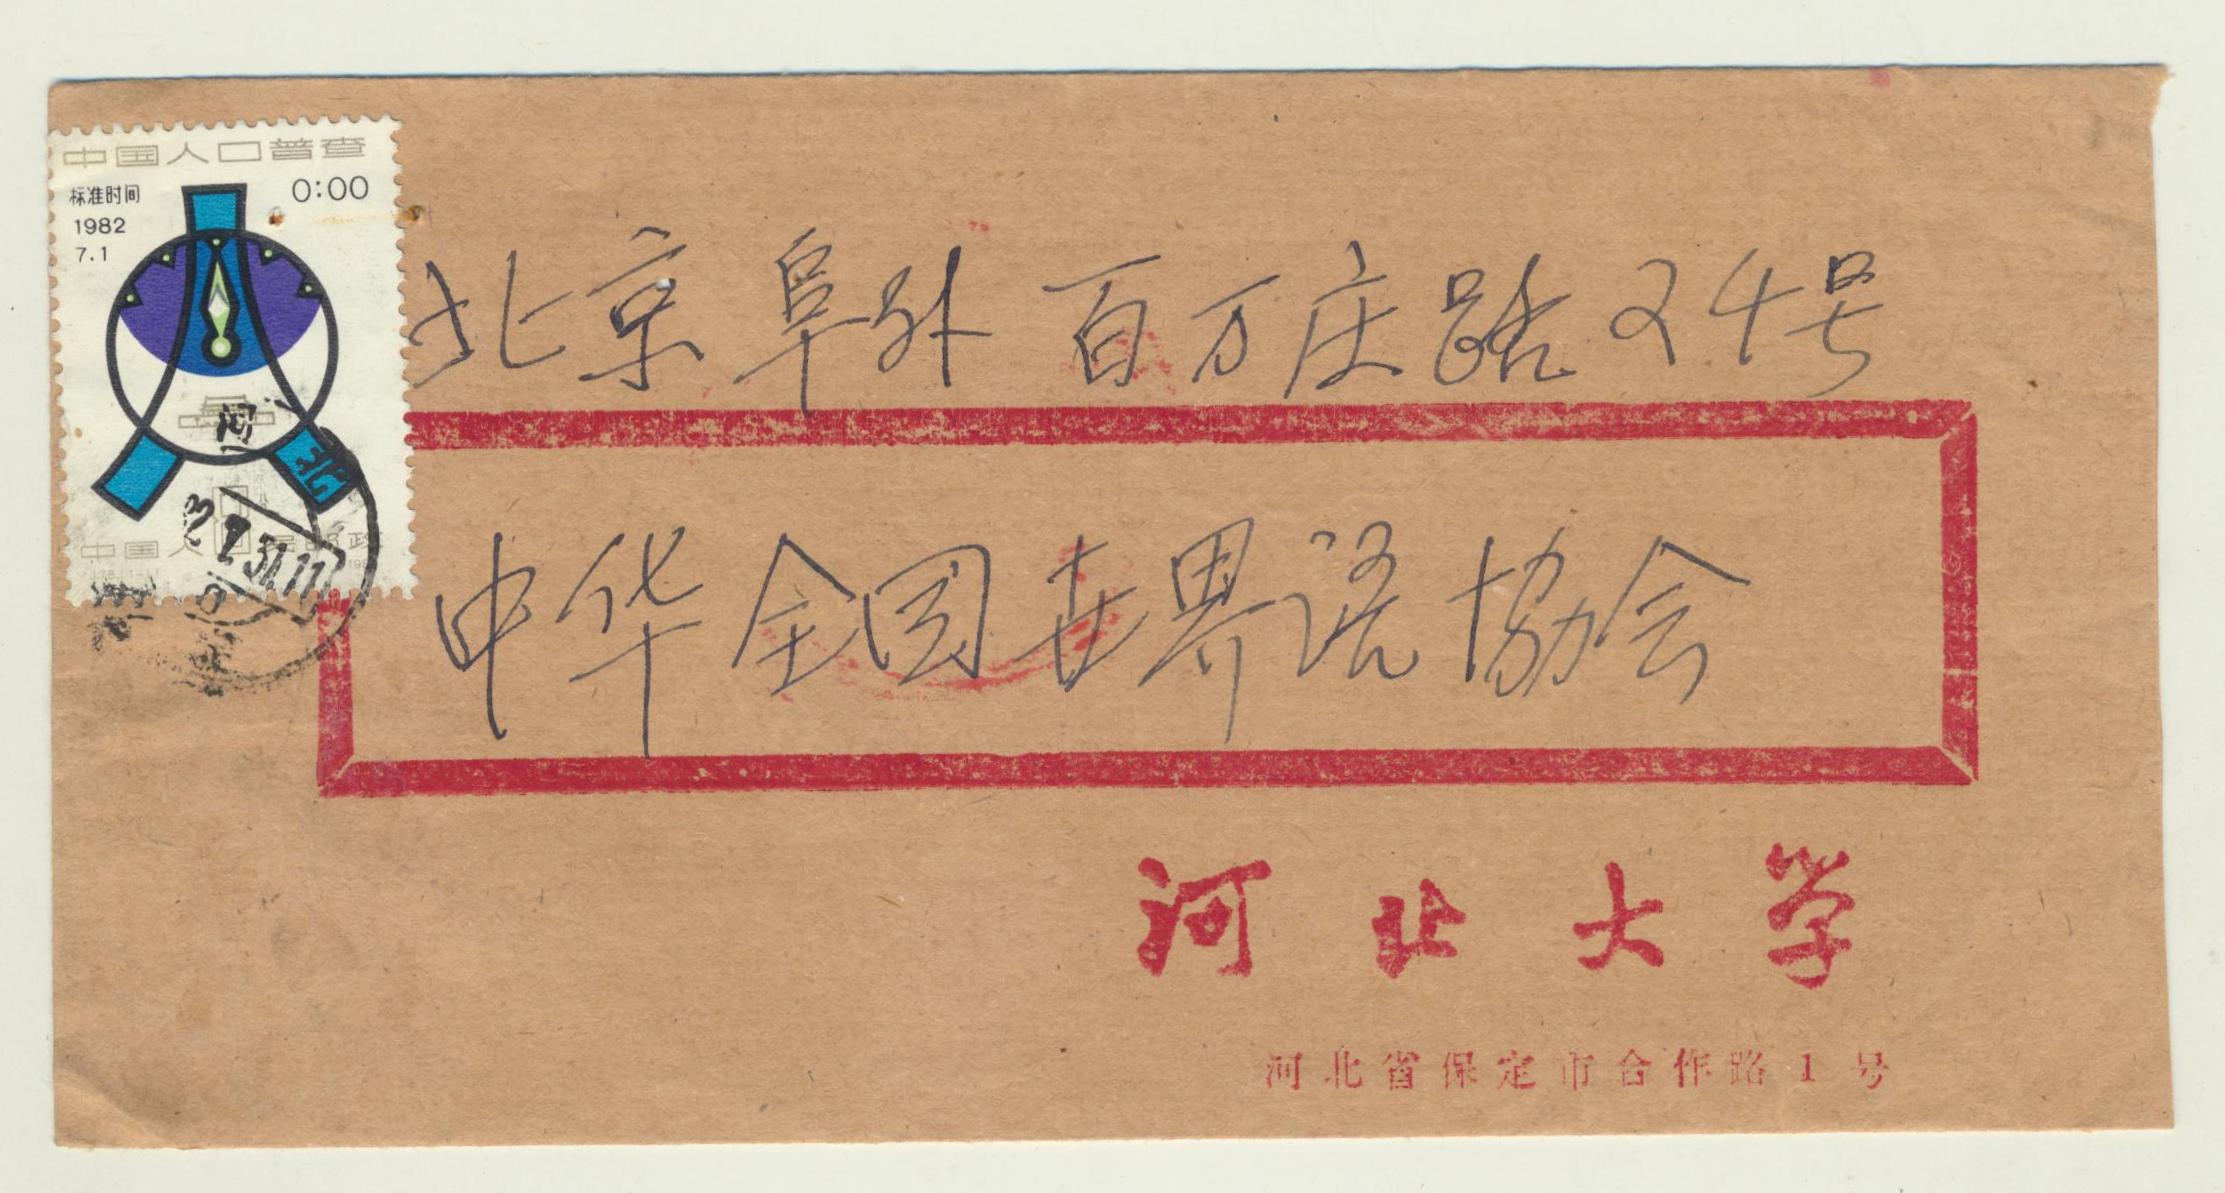 中国人口普查
标准时间 0:00
1982
7.1
北京阜外百万庄路24号
中华全国世界语协会
河北
中国人民邮政
河北大学
河北省保定市合作路1号